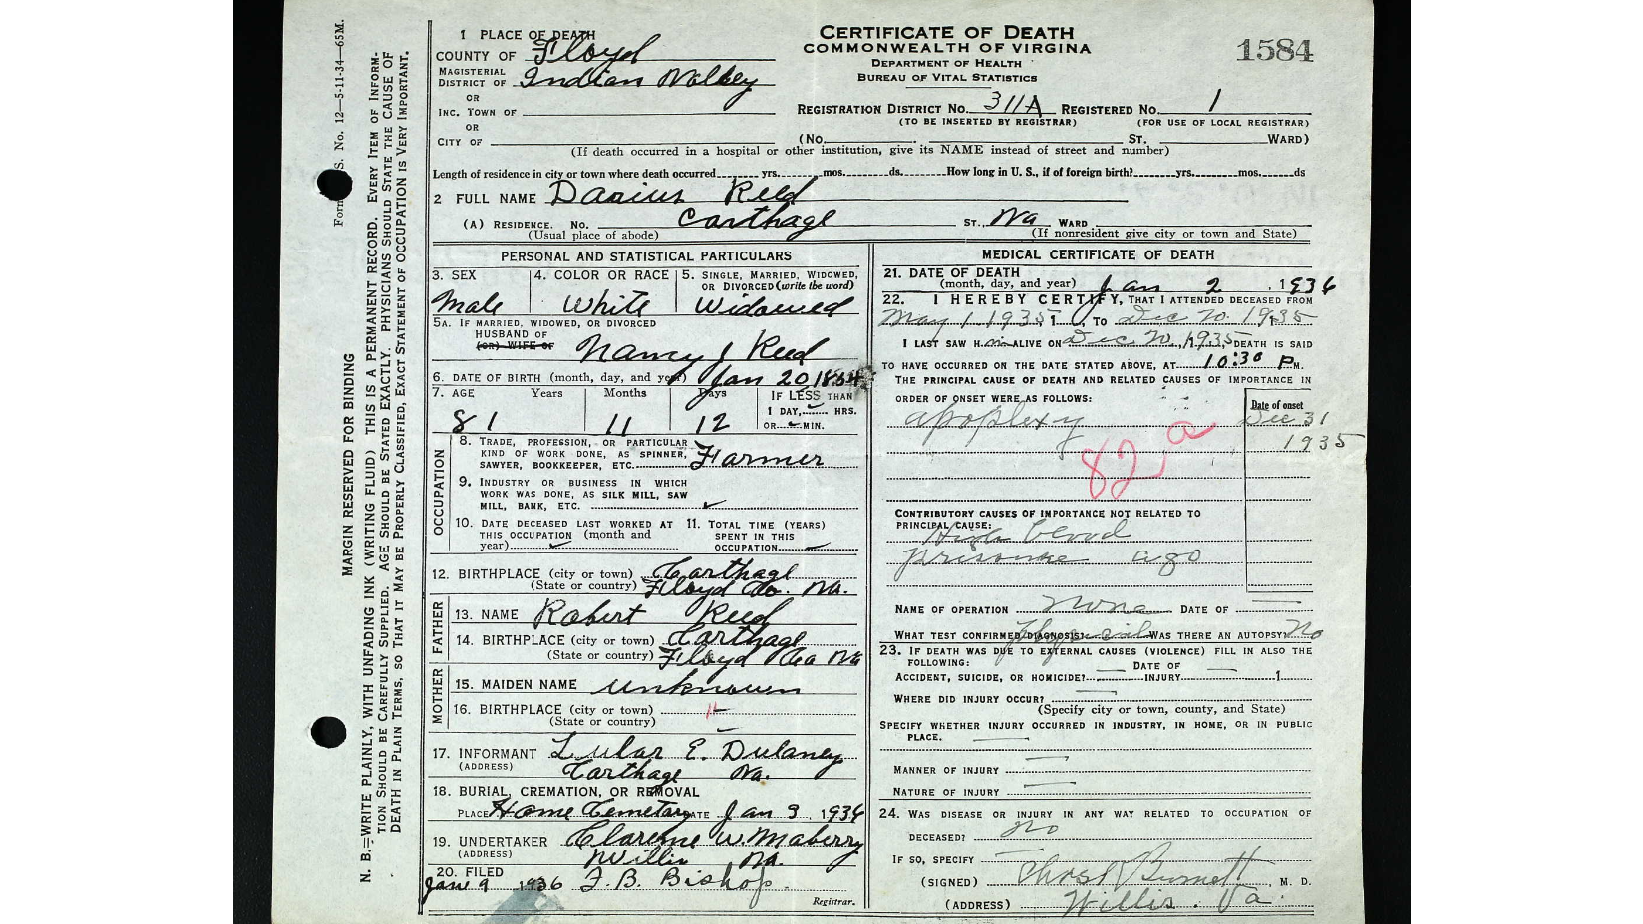 Form V. S. No. 12—5-11-34—65M.
MARGIN RESERVED FOR BINDING
N. B.—WRITE PLAINLY, WITH UNFADING INK (WRITING FLUID) THIS IS A PERMANENT RECORD. EVERY ITEM OF INFORM-
TION SHOULD BE CAREFULLY SUPPLIED. AGE SHOULD BE STATED EXACTLY. PHYSICIANS SHOULD STATE THE CAUSE OF
DEATH IN PLAIN TERMS, SO THAT IT MAY BE PROPERLY CLASSIFIED, EXACT STATEMENT OF OCCUPATION IS VERY IMPORTANT.
CERTIFICATE OF DEATH
COMMONWEALTH OF VIRGINA
DEPARTMENT OF HEALTH
BUREAU OF VITAL STATISTICS
1584
1 PLACE OF DEATH
COUNTY OF Floyd
MAGISTERIAL
DISTRICT OF Indian Valley
OR
INC. TOWN OF
OR
CITY OF
REGISTRATION DISTRICT NO. 311A REGISTERED NO. 1
(TO BE INSERTED BY REGISTRAR) (FOR USE OF LOCAL REGISTRAR)
(NO. ST. WARD)
(If death occurred in a hospital or other institution, give its NAME instead of street and number)
Length of residence in city or town where death occurred yrs. mos. ds. How long in U. S., if of foreign birth? yrs. mos. ds
2 FULL NAME Darius Reed
(A) RESIDENCE. NO. Carthage ST., Va WARD
(Usual place of abode) (If nonresident give city or town and State)
PERSONAL AND STATISTICAL PARTICULARS
3. SEX
Male
4. COLOR OR RACE
White
5. SINGLE, MARRIED, WIDOWED,
OR DIVORCED (write the word)
Widowed
5A. IF MARRIED, WIDOWED, OR DIVORCED
HUSBAND OF
(OR) WIFE OF Nancy J Reed
6. DATE OF BIRTH (month, day, and year) Jan 20, 1854
7. AGE Years Months Days IF LESS THAN
1 DAY, HRS.
81 11 12 OR MIN.
OCCUPATION
8. TRADE, PROFESSION, OR PARTICULAR
KIND OF WORK DONE, AS SPINNER,
SAWYER, BOOKKEEPER, ETC. Farmer
9. INDUSTRY OR BUSINESS IN WHICH
WORK WAS DONE, AS SILK MILL, SAW
MILL, BANK, ETC.
10. DATE DECEASED LAST WORKED AT
THIS OCCUPATION (month and
year)
11. TOTAL TIME (YEARS)
SPENT IN THIS
OCCUPATION
12. BIRTHPLACE (city or town) Carthage
(State or country) Floyd Co. Va.
FATHER
13. NAME Robert Reed
14. BIRTHPLACE (city or town) Carthage
(State or country) Floyd Co Va
MOTHER
15. MAIDEN NAME unknown
16. BIRTHPLACE (city or town)
(State or country)
17. INFORMANT Lular E. Dulaney
(ADDRESS) Carthage Va.
18. BURIAL, CREMATION, OR REMOVAL
PLACE Home Cemetary DATE Jan 3, 1936
19. UNDERTAKER Clarence W. Maberry
(ADDRESS) Willis Va.
20. FILED
Jan 9 1936 F. B. Bishop.
Registrar.
MEDICAL CERTIFICATE OF DEATH
21. DATE OF DEATH
(month, day, and year) Jan 2, 1936
22. I HEREBY CERTIFY, THAT I ATTENDED DECEASED FROM
May 1 1935, 1 , TO Dec 20, 1935
I LAST SAW H im ALIVE ON Dec 20, 1935 DEATH IS SAID
TO HAVE OCCURRED ON THE DATE STATED ABOVE, AT 10:30 P.M.
THE PRINCIPAL CAUSE OF DEATH AND RELATED CAUSES OF IMPORTANCE IN
ORDER OF ONSET WERE AS FOLLOWS:
Date of onset
apoplexy Dec 31
1935
82 a
CONTRIBUTORY CAUSES OF IMPORTANCE NOT RELATED TO
PRINCIPAL CAUSE:
High blood
NAME OF OPERATION none DATE OF
WHAT TEST CONFIRMED DIAGNOSIS? WAS THERE AN AUTOPSY? No
23. IF DEATH WAS DUE TO EXTERNAL CAUSES (VIOLENCE) FILL IN ALSO THE
FOLLOWING:
DATE OF
ACCIDENT, SUICIDE, OR HOMICIDE? INJURY 1
WHERE DID INJURY OCCUR?
(Specify city or town, county, and State)
SPECIFY WHETHER INJURY OCCURRED IN INDUSTRY, IN HOME, OR IN PUBLIC
PLACE.
MANNER OF INJURY
NATURE OF INJURY
24. WAS DISEASE OR INJURY IN ANY WAY RELATED TO OCCUPATION OF
DECEASED? no
IF SO, SPECIFY
(SIGNED) Burnett, M. D.
(ADDRESS) Willis. Va.